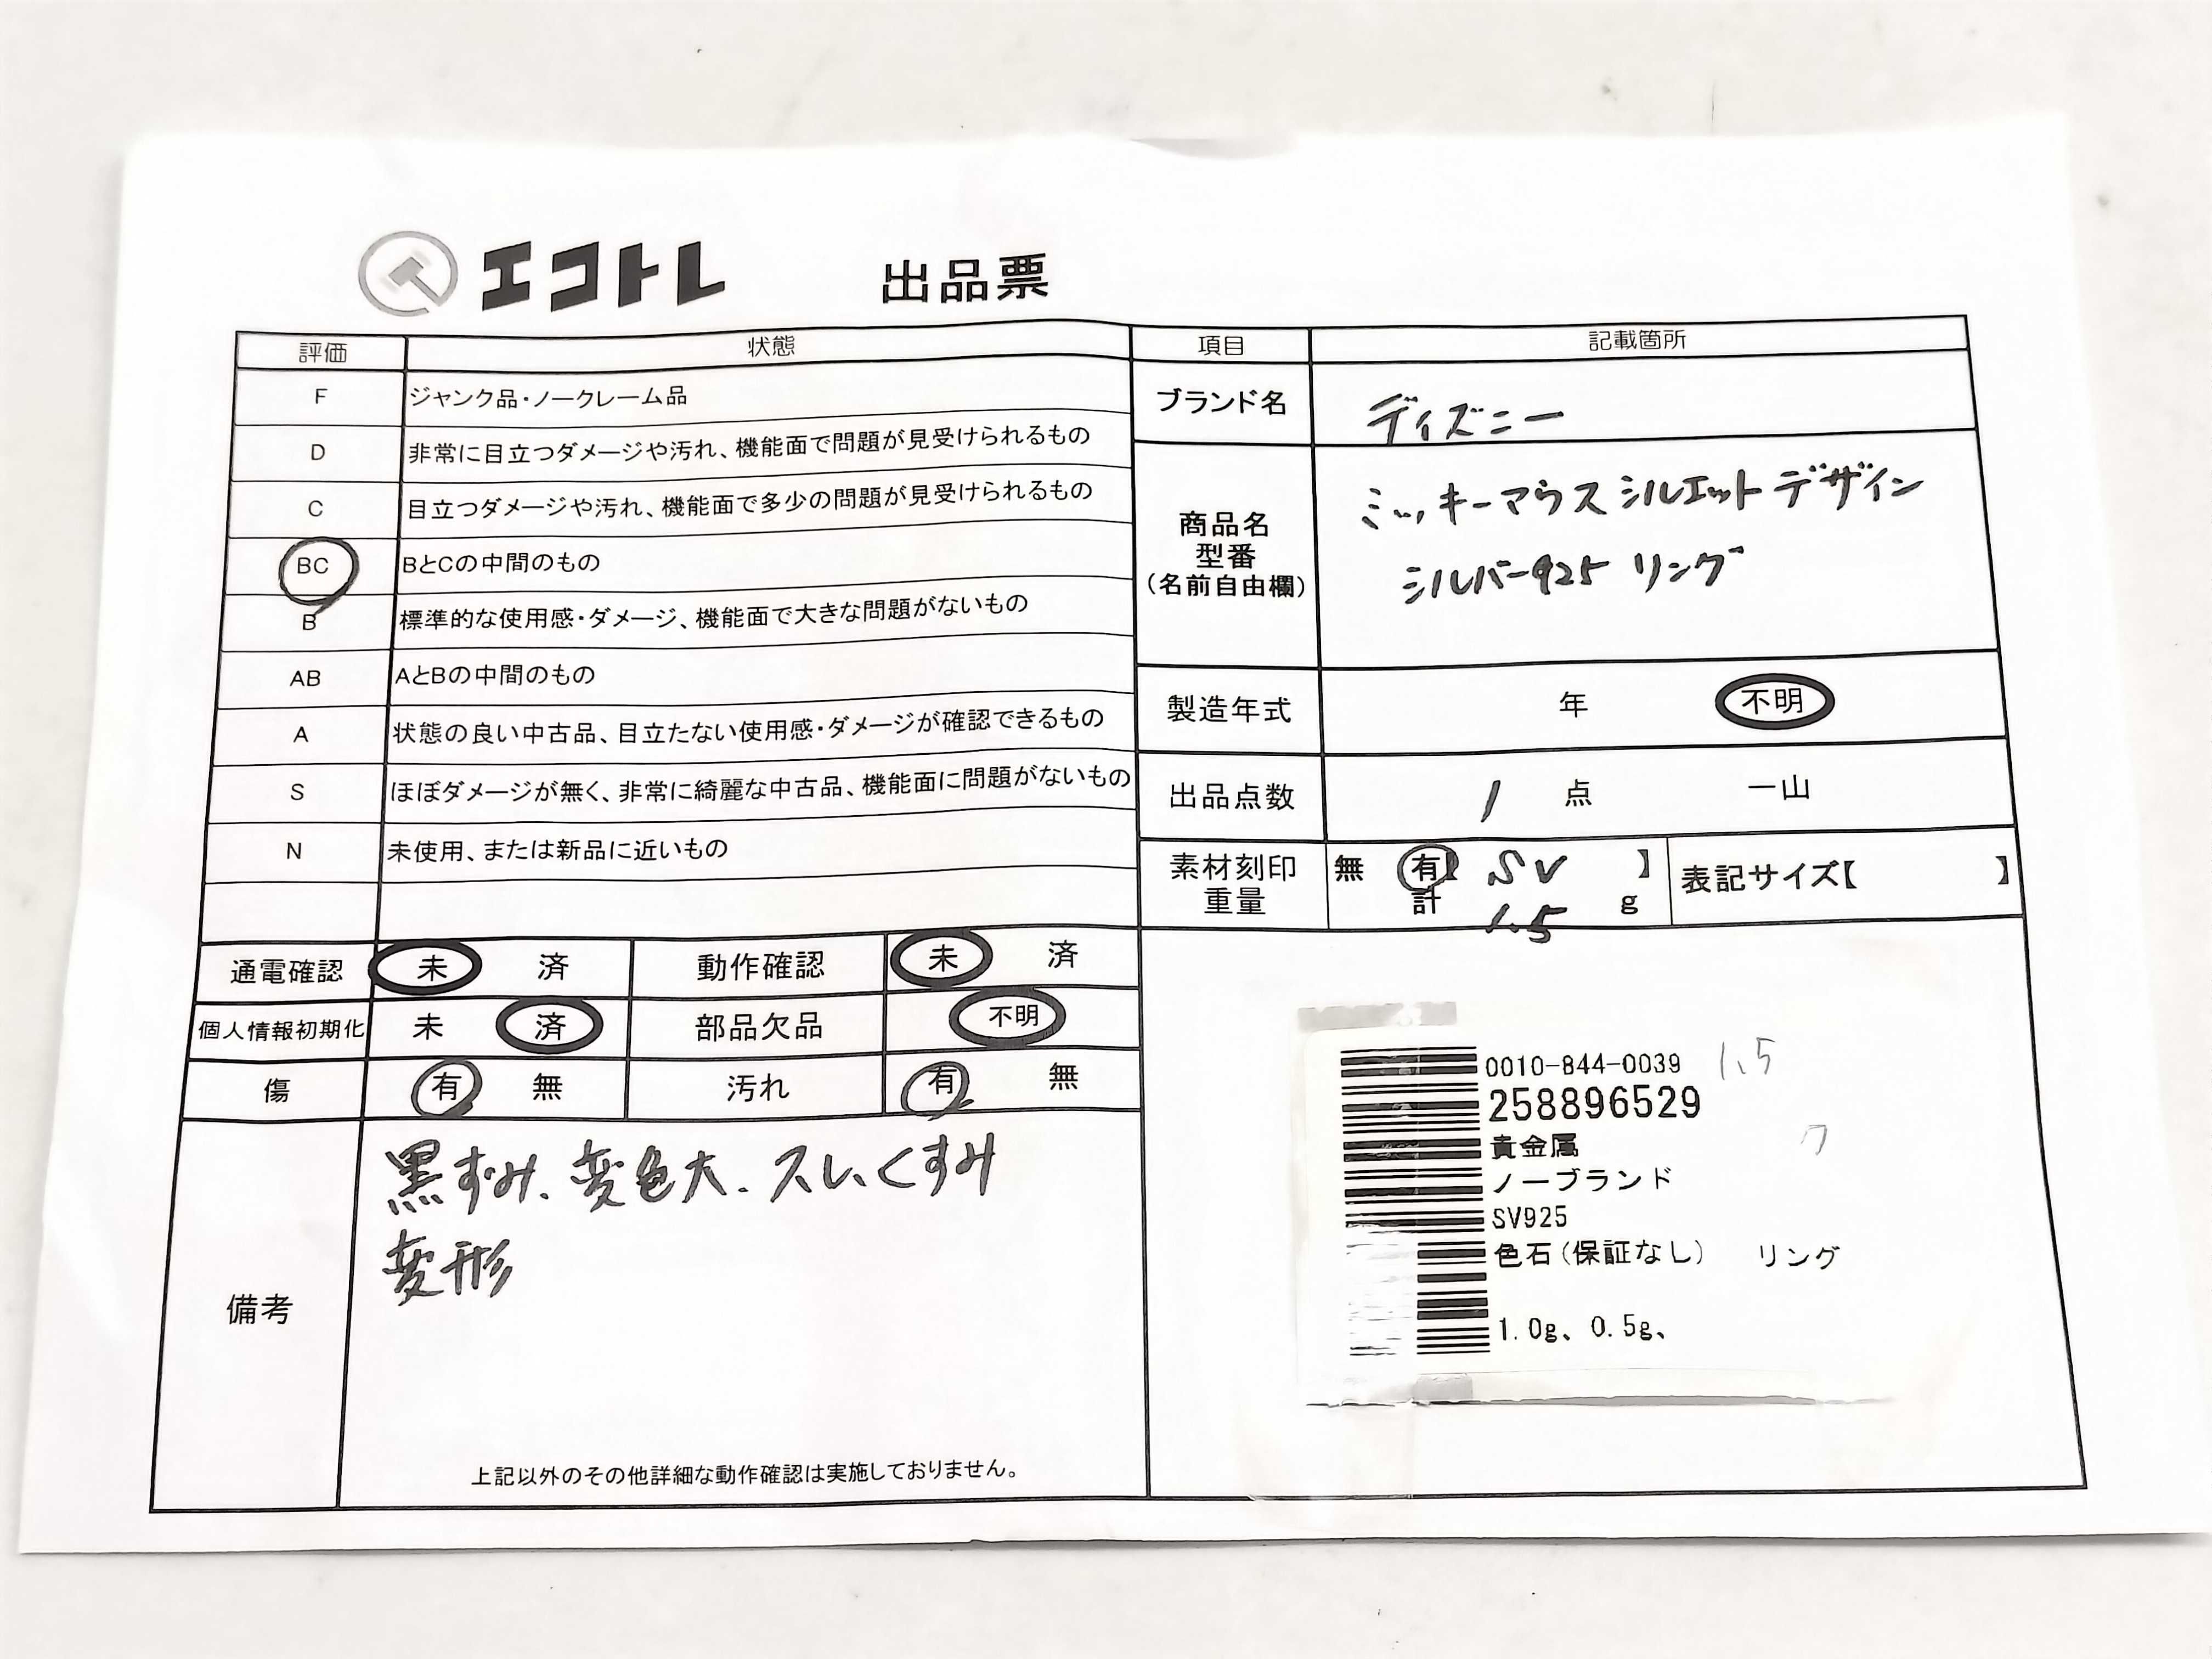 エコトレ 出品票
評価 状態 項目 記載箇所
F ジャンク品・ノークレーム品
D 非常に目立つダメージや汚れ、機能面で問題が見受けられるもの
C 目立つダメージや汚れ、機能面で多少の問題が見受けられるもの
BC BとCの中間のもの
B 標準的な使用感・ダメージ、機能面で大きな問題がないもの
AB AとBの中間のもの
A 状態の良い中古品、目立たない使用感・ダメージが確認できるもの
S ほぼダメージが無く、非常に綺麗な中古品、機能面に問題がないもの
N 未使用、または新品に近いもの
ブランド名 ディズニー
商品名
型番
(名前自由欄)
ミッキーマウス シルエット デザイン
シルバー925 リング
製造年式 年 不明
出品点数 1 点 一山
素材刻印 無 有【 SV 】 表記サイズ【 】
重量 計 1.5 g
通電確認 未 済 動作確認 未 済
個人情報初期化 未 済 部品欠品 不明
傷 有 無 汚れ 有 無
備考
黒ずみ、変色大、スレ、くすみ
変形
上記以外のその他詳細な動作確認は実施しておりません。
0010-844-0039 1.5
258896529
貴金属
ノーブランド
SV925
色石(保証なし) リング
1.0g、0.5g、